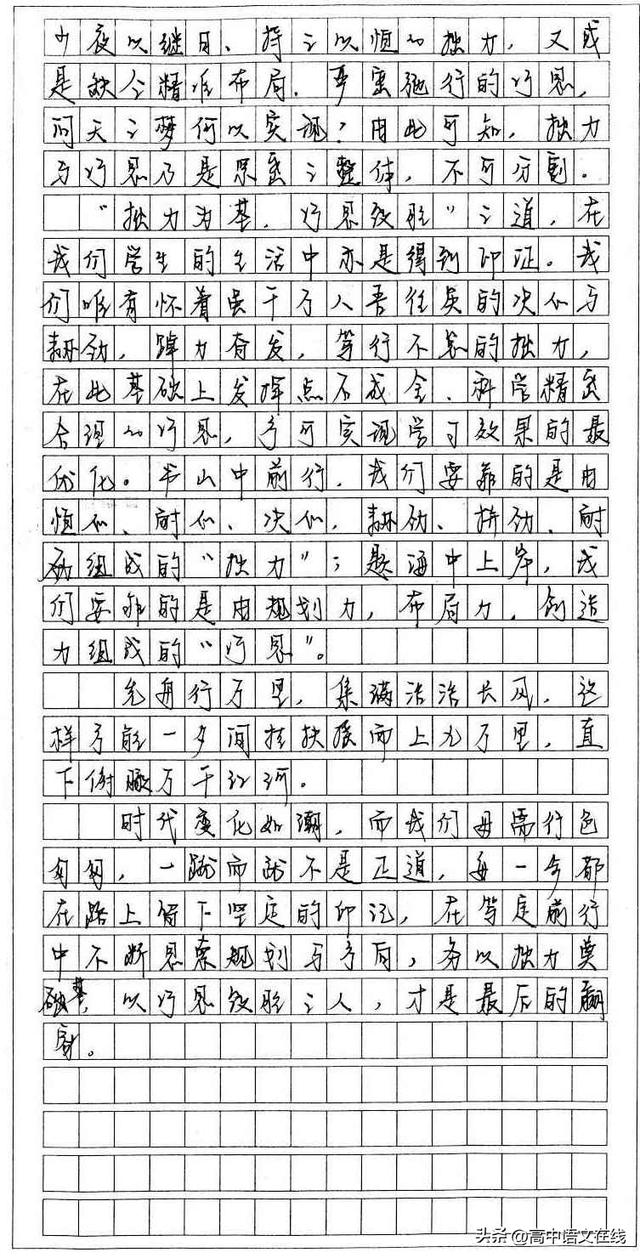 少夜以继日、持之以恒的拙力，又或
是缺分精准布局、严密施行的巧思，
问天之梦何以实现？由此可知，拙力
与巧思乃是紧密之整体，不可分割。
“拙力为基，巧思致胜”之道，在
我们学生的生活中亦是得到印证。我
们唯有怀着虽千万人吾往矣的决心与
韧劲，踔力奋发，笃行不怠的拙力，
在此基础上发挥点石成金、科学精密
合理的巧思，方可实现学习效果的最
优化。书山中前行，我们要靠的是由
恒心、耐心、决心，韧劲、拼劲、耐
劲组成的“拙力”；题海中上岸，我
们要靠的是由规划力，布局力，创造
力组成的“巧思”。
先身行万里，集满浩浩长风，这
样方能一夕间扶摇而上九万里，直
下俯瞰万千江河。
时代变化如潮，而我们毋需行色
匆匆，一蹴而就不是正道，每一步都
在路上留下坚定的印记，在笃定前行
中不断思索规划与方向，务以拙力奠
基，以巧思致胜之人，才是最后的赢
家。
头条@高中语文在线